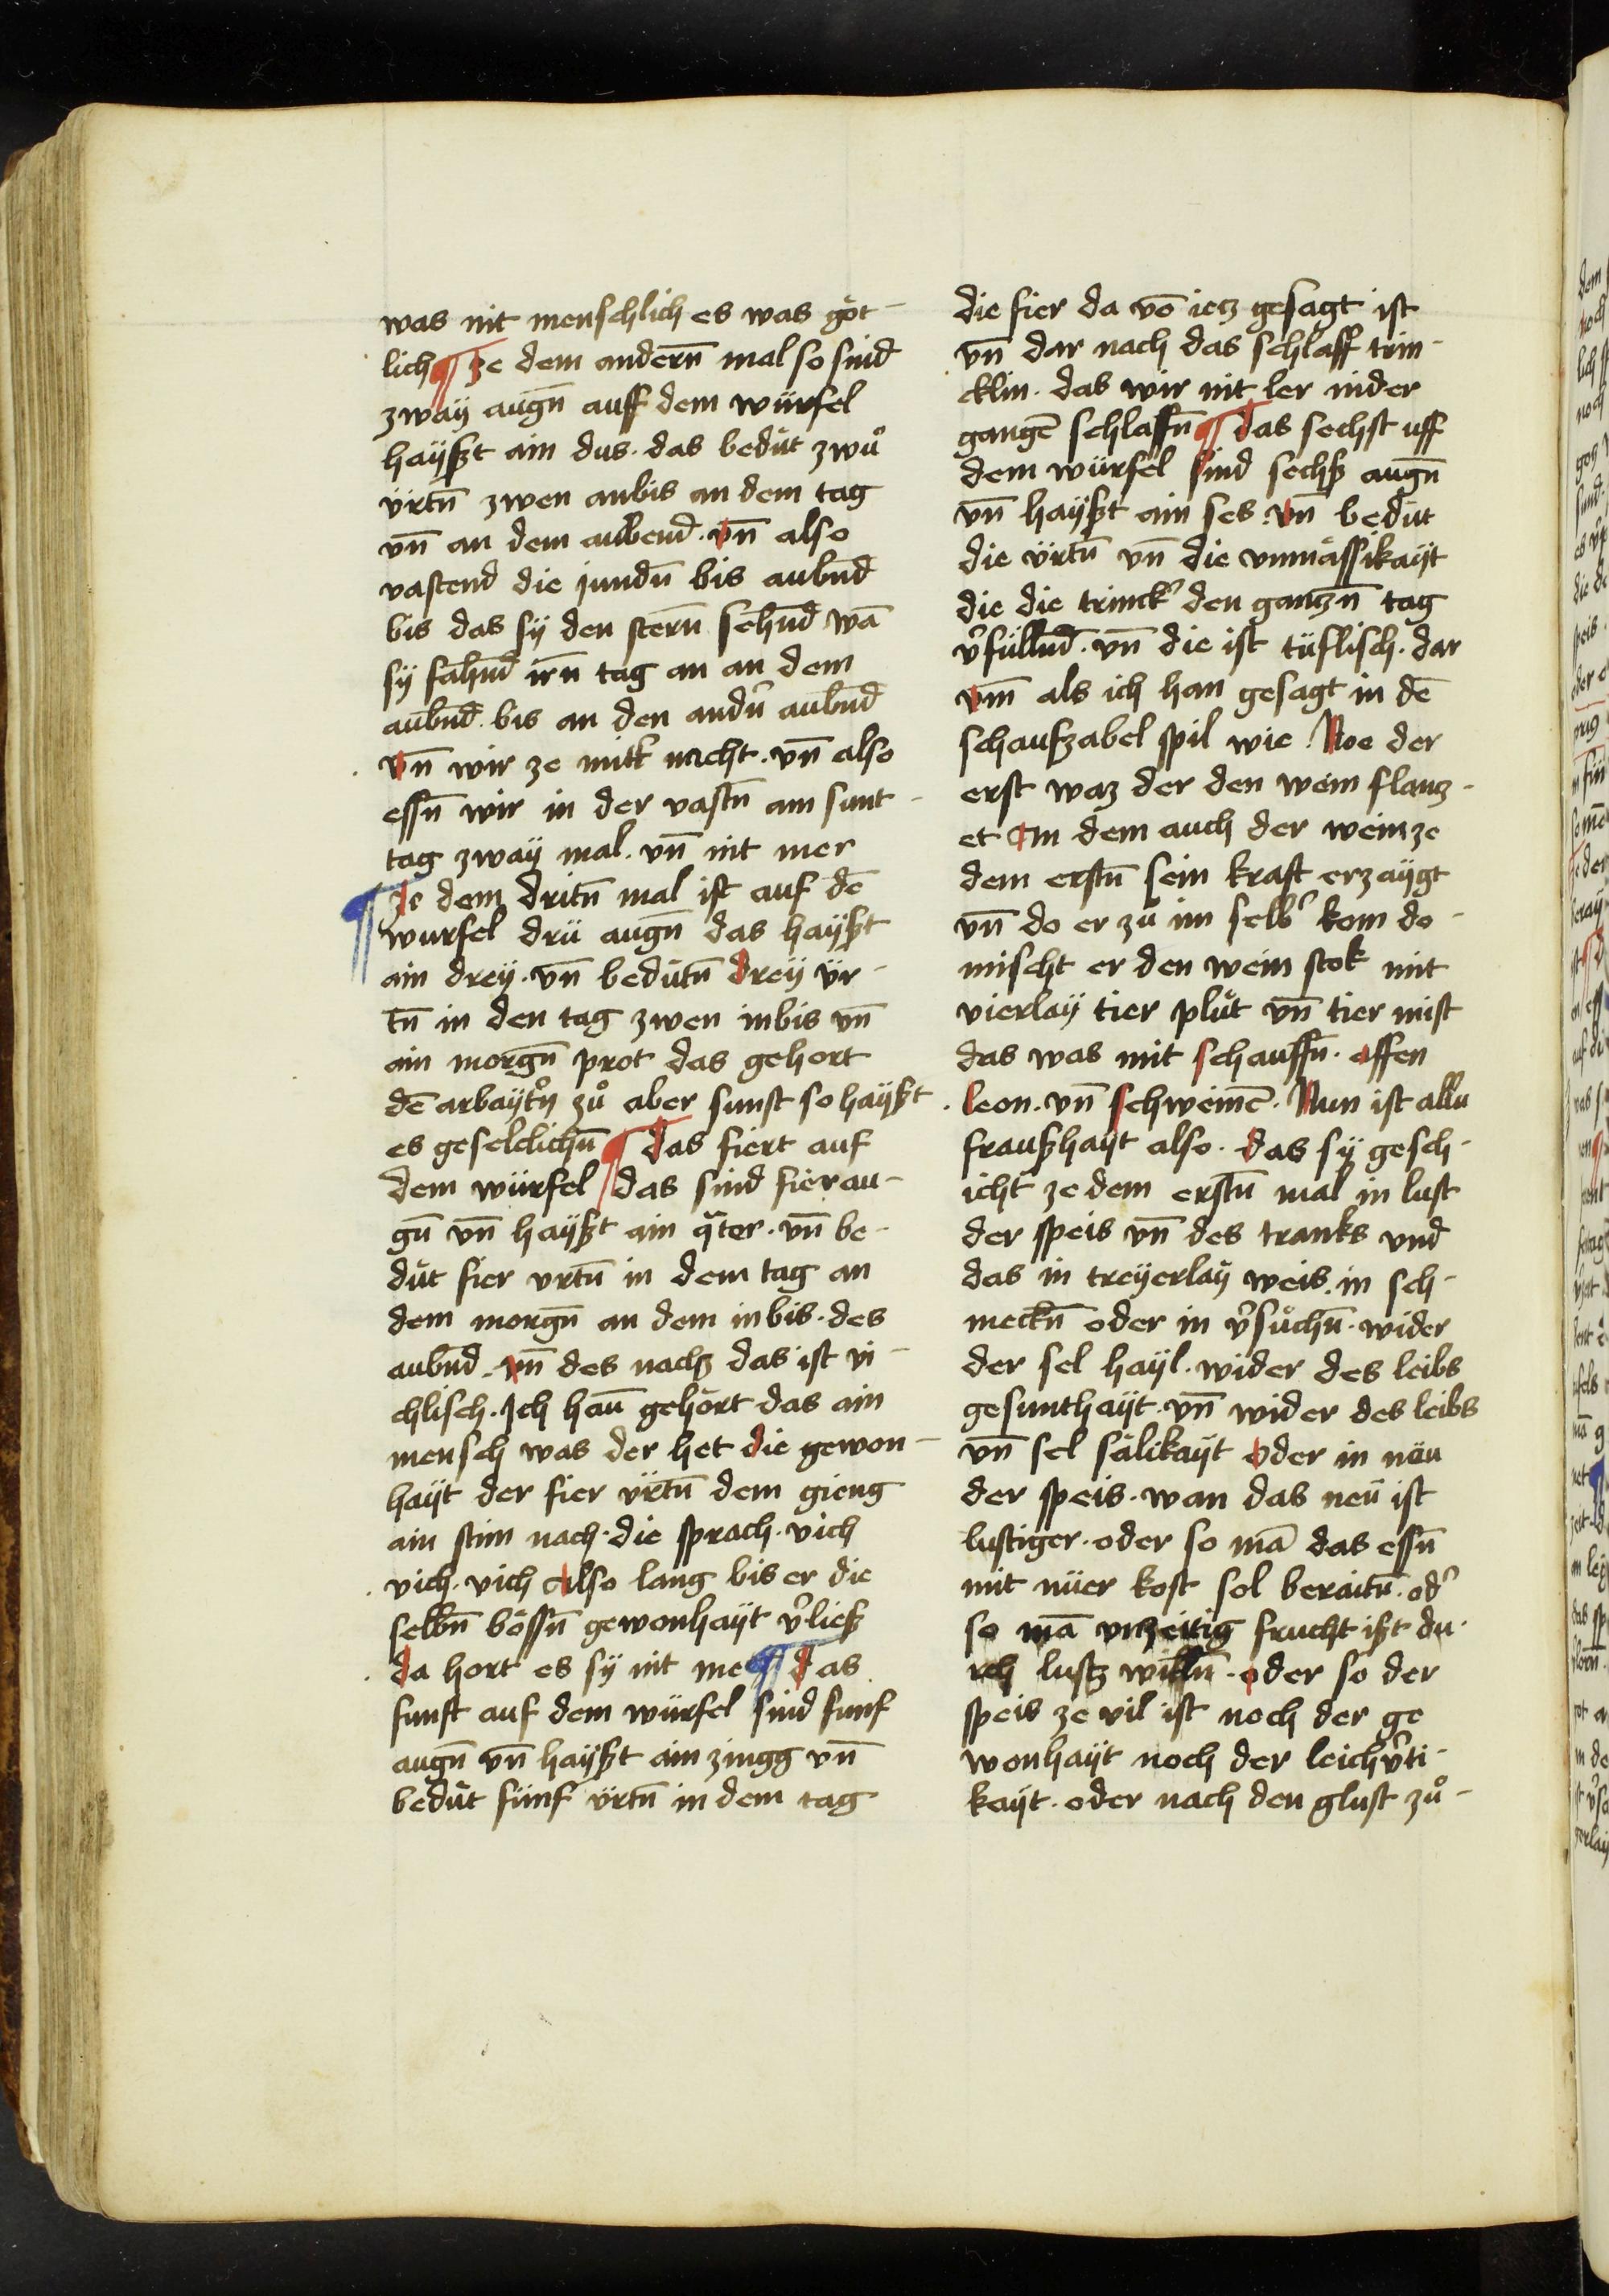 was nit menschlich es was göt-
lich ¶ ze dem andern̄ mal so sind
zwaÿ augn̄ auff dem würfel
haÿßt ain dus · das bedüt zwů
ürtn̄ zwen anbis an dem tag
vn̄ an dem aubend · vn̄ also
vastend die jundn̄ bis aubn̄d
bis das sÿ den stern̄ sehn̄d wā
sÿ fahn̄d irn̄ tag an an dem
aubn̄d · bis an den andn̄ aubn̄d
vn̄ wir ze mitt nacht · vn̄ also
essn̄ wir in der vastn̄ am sunt-
tag zwaÿ mal · vn̄ nit mer
¶ ze dem dritn̄ mal ist auf dē
wurfel drü augn̄ das haÿßt
ain dreÿ · vn̄ bedütn̄ dreÿ ür-
tn̄ in den tag zwen inbis vn̄
ain morgn̄ prot das gehort
dē arbaÿtn̄ zů aber sunst so haÿßt
es geselclichn̄ ¶ das fiert auf
dem würfel das sind fier au-
gn̄ vn̄ haÿßt ain qāter · vn̄ be-
düt fier vrtn̄ in dem tag an
dem morgn̄ an dem inbis · des
aubn̄d · vn̄ des nachz das ist vi-
chlisch · Ich han̄ gehört das ain
mensch was der het die gewon-
haÿt der fier ürtn̄ dem gieng
ain stim nach · die sprach · vich
vich · vich also lang bis er die
selbn̄ bössn̄ gewonhaÿt v̉ließ
da hort es sÿ nit me ¶ das
funft auf dem würfel sind funf
augn̄ vn̄ haÿßt ain zingg vn̄
bedüt fünf ürtn̄ in dem tag
die fier da vō ietz gesagt ist
vn̄ dar nach das schlaff trin-
cklin · das wir nit ler nider
gangē schlaffn̄ ¶ das sechst uff
dem würfel sind sechß augn̄
vn̄ haÿßt ain ses · vn̄ bedüt
die ürtn̄ vn̄ die vnmässikaÿt
die die trinck̉ den gantzn̄ tag
v̉füllnd̄ · vn̄ die ist tüflisch · dar
vm als ich han gesagt in dē
schaufzabel spil wie · Noe der
erst waz der den wein flanz-
et in dem auch der wein ze
dem erstn̄ sein kraft erzaÿgt
vn̄ do er zů im selb̉ kom do-
mischt er den wein stok mit
vierlaÿ tier plůt vn̄ tier mist
das was mit schauffn̄ · affen
leon · vn̄ schweinē · Nun ist allu
fraußhaÿt also · das sÿ gesch-
icht ze dem erstn̄ mal in lust
der speis vn̄ des tranks vnd
das in treÿerlaÿ weis · in sch-
meckn̄ oder in v̉sůchn̄ · wider
der sel haÿl · wider des leibs
gesunthaÿt · vn̄ wider des leibs
vn̄ sel sälikaÿt oder in näu
der speis · wan das neü ist
lustiger · oder so mā das essn̄
mit nüer kost sol beraitn̄ · od̉
so mā vnzeitig frucht ißt du-
rch lustz willn̄ · oder so der
speis ze vil ist noch der ge
wonhaÿt noch der leichv̉ti-
kaÿt · oder nach den glust zů-